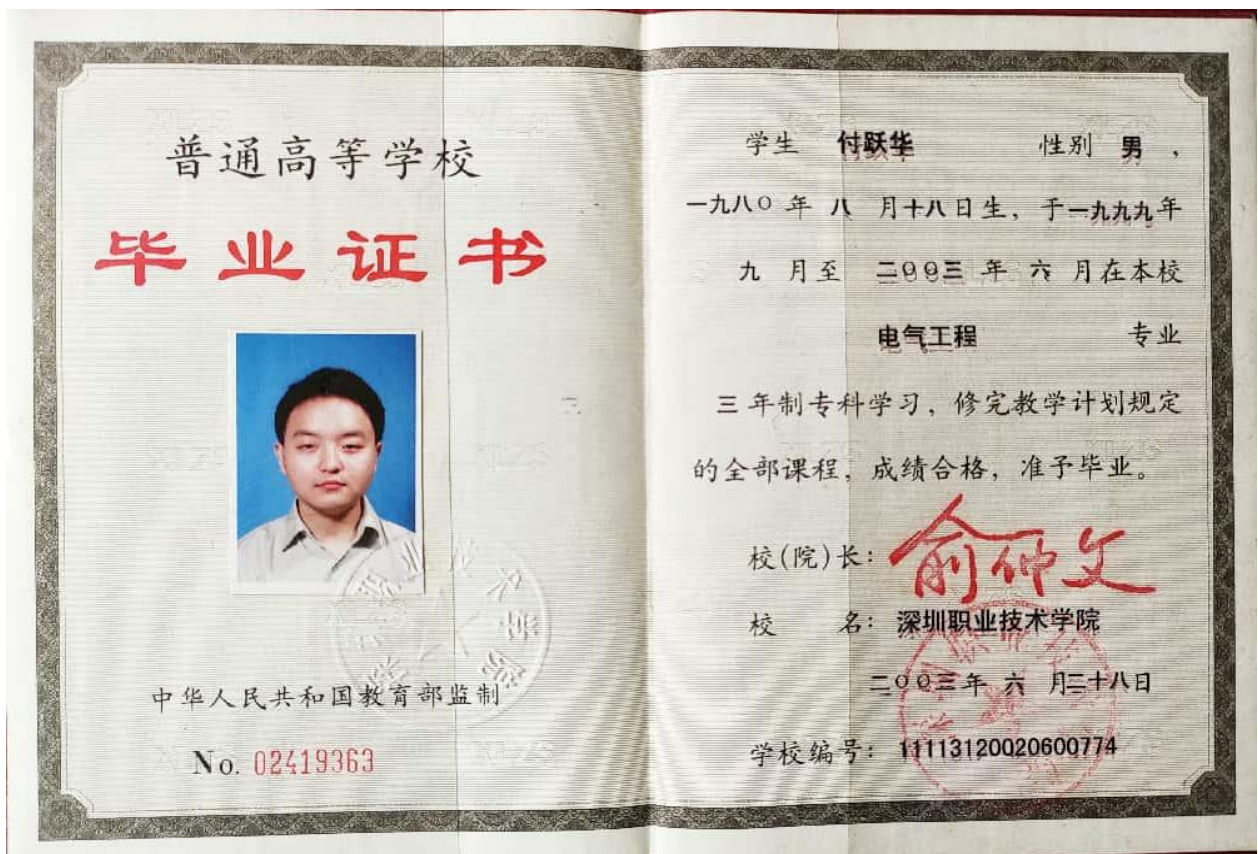 普通高等学校
毕业证书
中华人民共和国教育部监制
No. 02419363
学生 付跃华 性别 男，
一九八〇年 八 月十八日生，于一九九九年
九 月至 二〇〇三 年 六 月在本校
电气工程 专业
三 年制专科学习，修完教学计划规定
的全部课程，成绩合格，准予毕业。
校(院)长：俞仲文
校 名：深圳职业技术学院
二〇〇三年 六 月二十八日
学校编号：11113120020600774